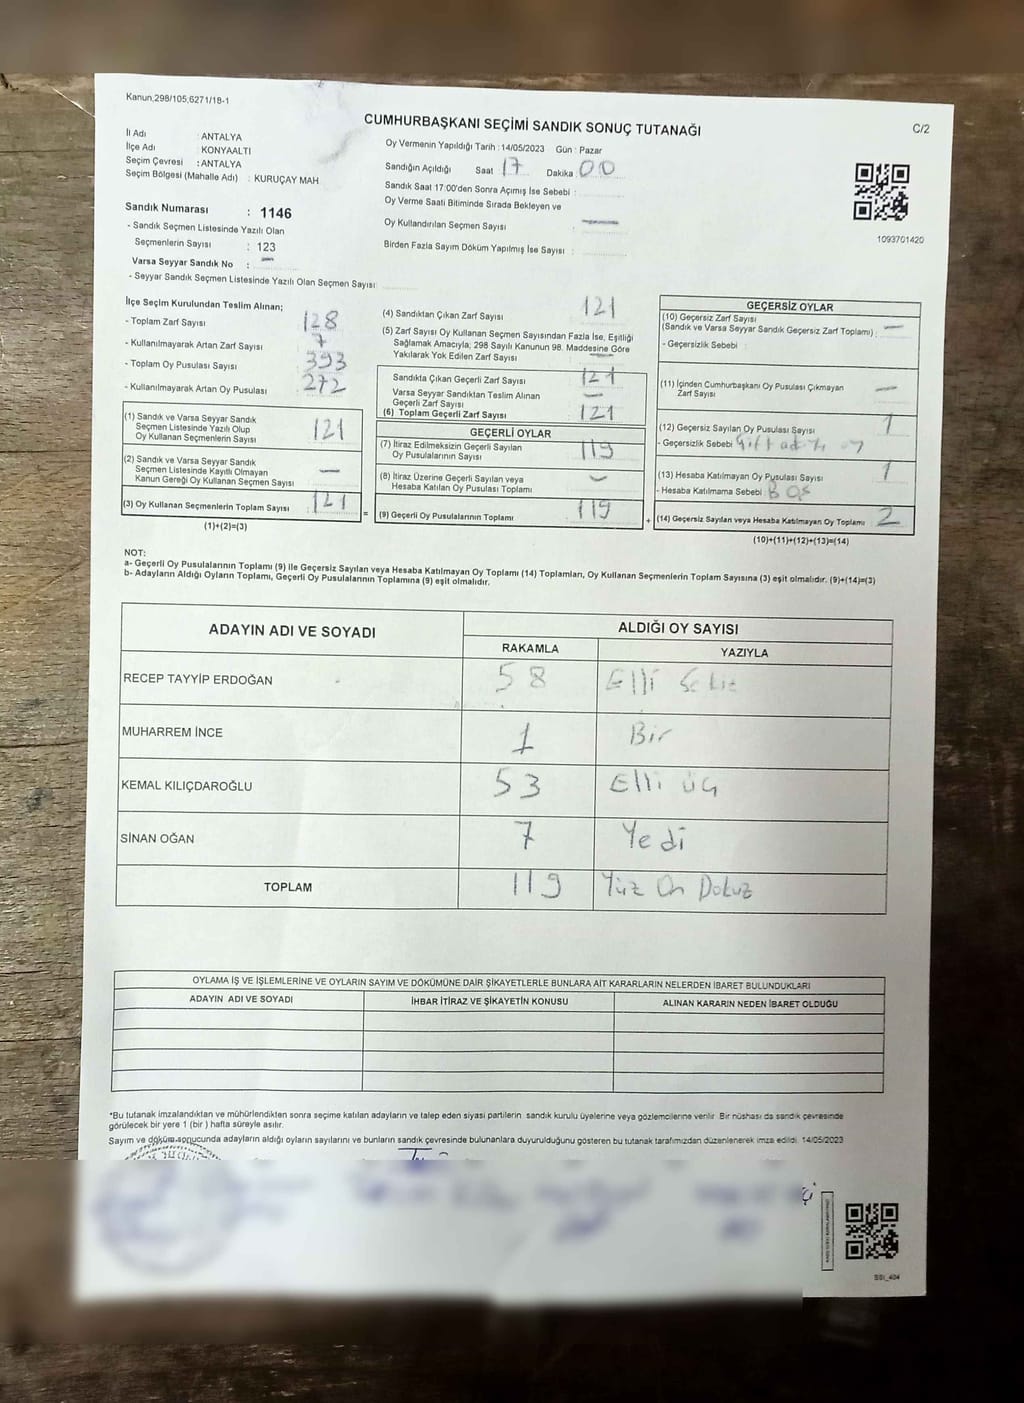 Kanun,298/105,6271/18-1
CUMHURBAŞKANI SEÇİMİ SANDIK SONUÇ TUTANAĞI
C/2
İl Adı : ANTALYA
İlçe Adı : KONYAALTI
Seçim Çevresi : ANTALYA
Seçim Bölgesi (Mahalle Adı) : KURUÇAY MAH
Sandık Numarası : 1146
- Sandık Seçmen Listesinde Yazılı Olan
Seçmenlerin Sayısı : 123
Varsa Seyyar Sandık No : —
- Seyyar Sandık Seçmen Listesinde Yazılı Olan Seçmen Sayısı:
Oy Vermenin Yapıldığı Tarih : 14/05/2023 Gün : Pazar
Sandığın Açıldığı Saat 17 Dakika : 00
Sandık Saat 17:00'den Sonra Açımış İse Sebebi :
Oy Verme Saati Bitiminde Sırada Bekleyen ve
Oy Kullandırılan Seçmen Sayısı : —
Birden Fazla Sayım Döküm Yapılmış İse Sayısı :
1093701420
İlçe Seçim Kurulundan Teslim Alınan;
- Toplam Zarf Sayısı 128
- Kullanılmayarak Artan Zarf Sayısı 7
- Toplam Oy Pusulası Sayısı 393
- Kullanılmayarak Artan Oy Pusulası 272
(1) Sandık ve Varsa Seyyar Sandık
Seçmen Listesinde Yazılı Olup
Oy Kullanan Seçmenlerin Sayısı 121
(2) Sandık ve Varsa Seyyar Sandık
Seçmen Listesinde Kayıtlı Olmayan
Kanun Gereği Oy Kullanan Seçmen Sayısı —
(3) Oy Kullanan Seçmenlerin Toplam Sayısı 121
(1)+(2)=(3)
(4) Sandıktan Çıkan Zarf Sayısı 121
(5) Zarf Sayısı Oy Kullanan Seçmen Sayısından Fazla İse, Eşitliği
Sağlamak Amacıyla; 298 Sayılı Kanunun 98. Maddesine Göre
Yakılarak Yok Edilen Zarf Sayısı —
Sandıkta Çıkan Geçerli Zarf Sayısı 121
Varsa Seyyar Sandıktan Teslim Alınan
Geçerli Zarf Sayısı —
(6) Toplam Geçerli Zarf Sayısı 121
GEÇERLİ OYLAR
(7) İtiraz Edilmeksizin Geçerli Sayılan
Oy Pusulalarının Sayısı 119
(8) İtiraz Üzerine Geçerli Sayılan veya
Hesaba Katılan Oy Pusulası Toplamı —
= (9) Geçerli Oy Pusulalarının Toplamı 119
GEÇERSİZ OYLAR
(10) Geçersiz Zarf Sayısı
(Sandık ve Varsa Seyyar Sandık Geçersiz Zarf Toplamı) : —
- Geçersizlik Sebebi :
(11) İçinden Cumhurbaşkanı Oy Pusulası Çıkmayan
Zarf Sayısı —
(12) Geçersiz Sayılan Oy Pusulası Sayısı 1
- Geçersizlik Sebebi oy
(13) Hesaba Katılmayan Oy Pusulası Sayısı 1
- Hesaba Katılmama Sebebi : Boş
+ (14) Geçersiz Sayılan veya Hesaba Katılmayan Oy Toplamı 2
(10)+(11)+(12)+(13)=(14)
NOT:
a- Geçerli Oy Pusulalarının Toplamı (9) ile Geçersiz Sayılan veya Hesaba Katılmayan Oy Toplamı (14) Toplamları, Oy Kullanan Seçmenlerin Toplam Sayısına (3) eşit olmalıdır. (9)+(14)=(3)
b- Adayların Aldığı Oyların Toplamı, Geçerli Oy Pusulalarının Toplamına (9) eşit olmalıdır.
ADAYIN ADI VE SOYADI ALDIĞI OY SAYISI
RAKAMLA YAZIYLA
RECEP TAYYİP ERDOĞAN 58 Elli Sekiz
MUHARREM İNCE 1 Bir
KEMAL KILIÇDAROĞLU 53 Elli üç
SİNAN OĞAN 7 Yedi
TOPLAM 119 Yüz On Dokuz
OYLAMA İŞ VE İŞLEMLERİNE VE OYLARIN SAYIM VE DÖKÜMÜNE DAİR ŞİKAYETLERLE BUNLARA AİT KARARLARIN NELERDEN İBARET BULUNDUKLARI
ADAYIN ADI VE SOYADI İHBAR İTİRAZ VE ŞİKAYETİN KONUSU ALINAN KARARIN NEDEN İBARET OLDUĞU
*Bu tutanak imzalandıktan ve mühürlendikten sonra seçime katılan adayların ve talep eden siyasi partilerin sandık kurulu üyelerine veya gözlemcilerine verilir. Bir nüshası da sandık çevresinde
görülecek bir yere 1 (bir) hafta süreyle asılır.
Sayım ve döküm sonucunda adayların aldığı oyların sayılarını ve bunların sandık çevresinde bulunanlara duyurulduğunu gösteren bu tutanak tarafımızdan düzenlenerek imza edildi. 14/05/2023